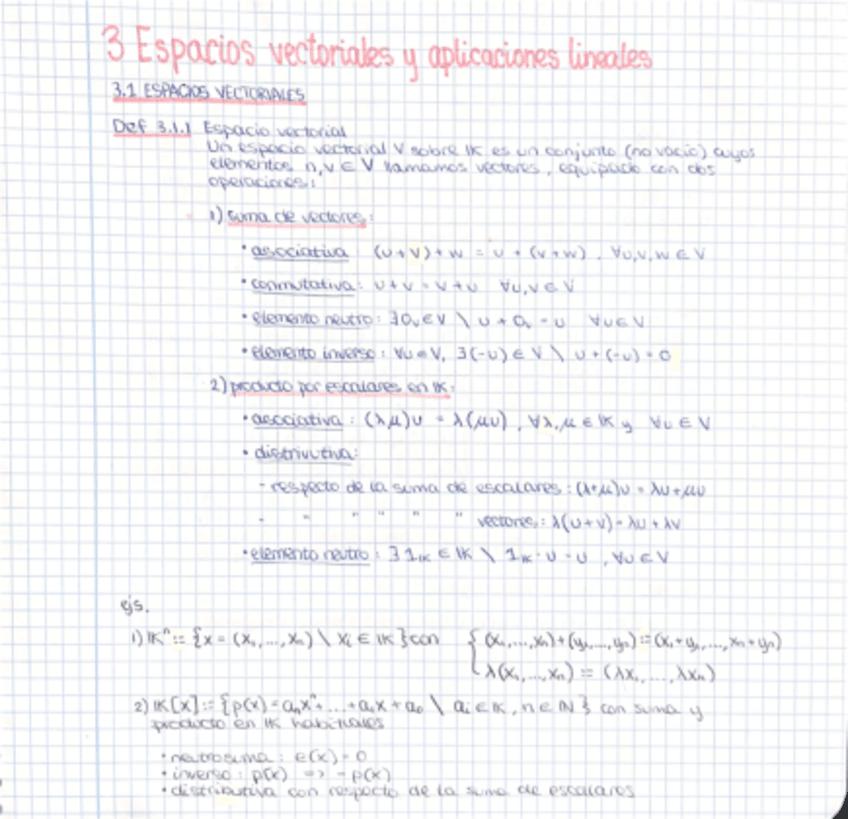 3 Espacios vectoriales y aplicaciones lineales
3.1 ESPACIOS VECTORIALES
Def 3.1.1 Espacio vectorial
Un espacio vectorial V sobre K es un conjunto (no vacío) cuyos
elementos u,v ∈ V llamamos vectores, equipado con dos
operaciones:
1) suma de vectores:
• asociativa (u+v)+w = u+(v+w), ∀u,v,w ∈ V
• conmutativa: u+v = v+u ∀u,v ∈ V
• elemento neutro: ∃0ᵥ ∈ V \ u + 0ᵥ = u ∀u ∈ V
• elemento inverso: ∀u ∈ V, ∃(-u) ∈ V \ u + (-u) = 0
2) producto por escalares en K:
• asociativa: (λμ)u = λ(μu), ∀λ,μ ∈ K y ∀u ∈ V
• distrivutiva:
- respecto de la suma de escalares: (λ+μ)u = λu+μu
- " " " " " vectores: λ(u+v) = λu + λv
• elemento neutro: ∃1_K ∈ K \ 1_K · u = u, ∀u ∈ V
ejs.
1) Kⁿ := {x = (x₁,...,xₙ) \ xᵢ ∈ K} con { (x₁,...,xₙ)+(y₁,...,yₙ) := (x₁+y₁,...,xₙ+yₙ)
λ(x₁,...,xₙ) := (λx₁,...,λxₙ)
2) K[x] := {p(x) = aₙxⁿ+...+a₁x+a₀ \ aᵢ ∈ K, n ∈ N} con suma y
producto en K habituales
• neutro suma: e(x) = 0
• inverso: p(x) => -p(x)
• distributiva con respecto de la suma de escalares